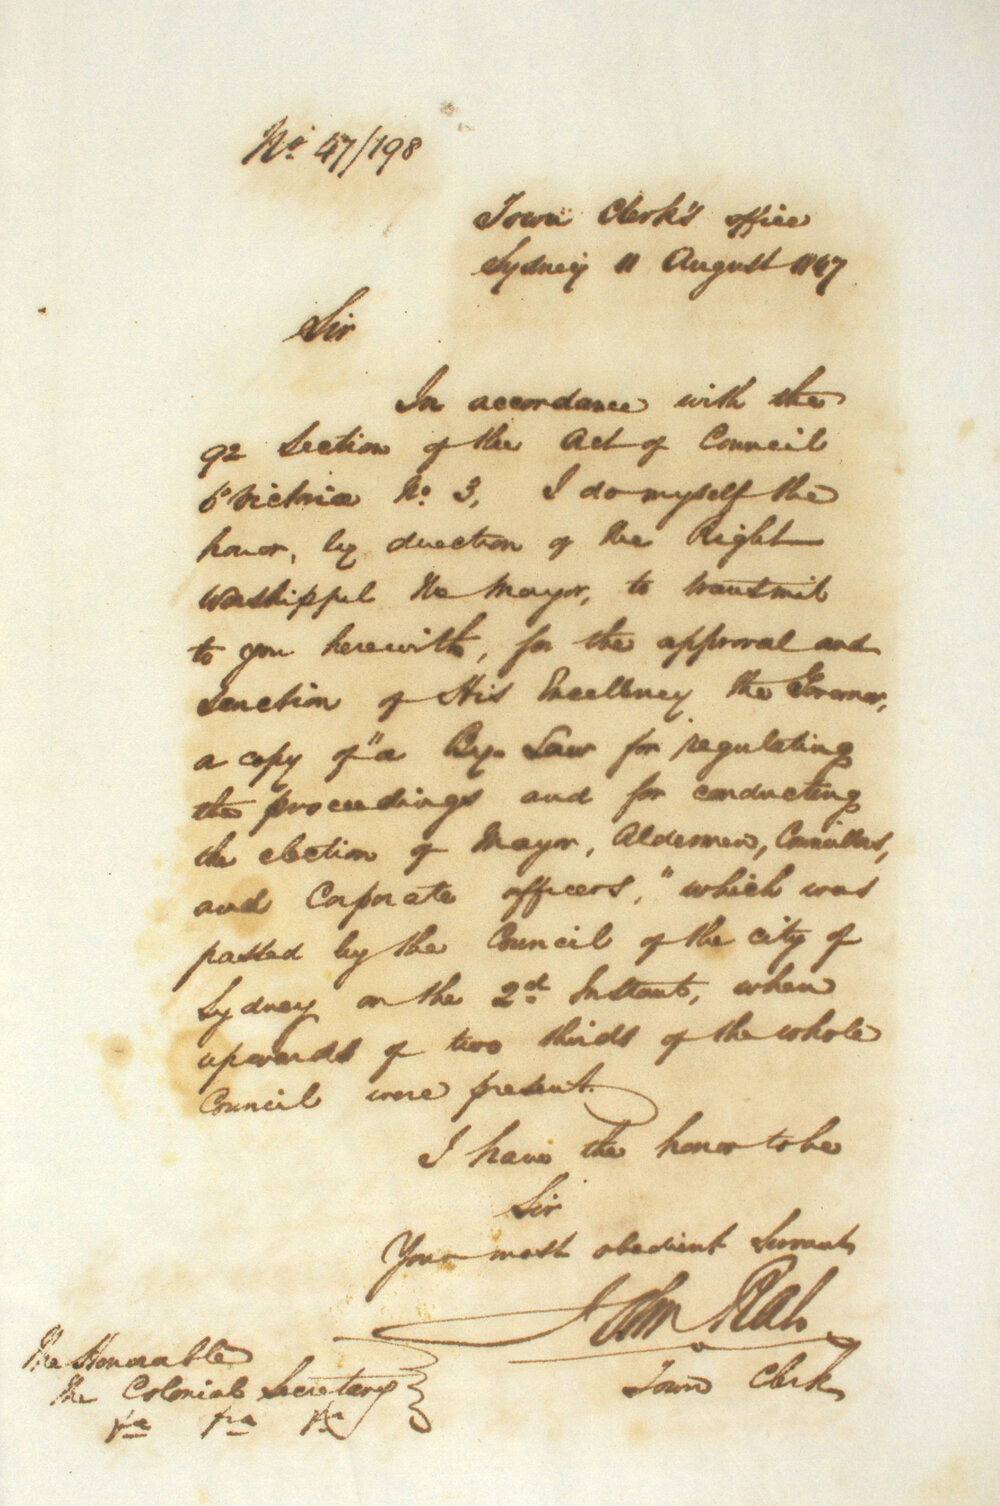 No. 47/198
Town Clerk's office
Sydney 11 August 1847
Sir
In accordance with the
92 Section of the Act of Council
6o Victoria No. 3, I do myself the
honor, by direction of the Right
Worshipful the Mayor, to transmit
to you herewith, for the approval and
sanction of His Excellency the Governor,
a copy of "a By-Law for regulating
the proceedings and for conducting
the election of Mayor, Aldermen, Councillors,
and Corporate officers," which was
passed by the Council of the city of
Sydney on the 2d. Instant, when
upwards of two thirds of the whole
Council were present.
I have the honor to be
Sir
Your most obedient Servant
John
Town Clerk
The Honorable
The Colonial Secretary